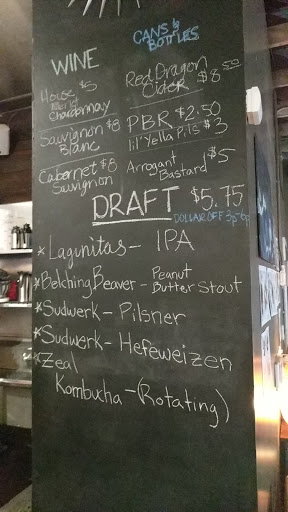 WINE
House $5
Blend
Chardonnay
Sauvignon $8
Blanc
Cabernet $8
Sauvignon
CANS &
BOTTLES
Red Dragon
Cider $8.50
PBR $2.50
lil' Yella Pils $3
Arrogant $5
Bastard
DRAFT $5.75
DOLLAR OFF 3p-6p
*Lagunitas - IPA
*Belching Beaver - Peanut
Butter Stout
*Sudwerk - Pilsner
*Sudwerk - Hefeweizen
*Zeal
Kombucha - (Rotating)